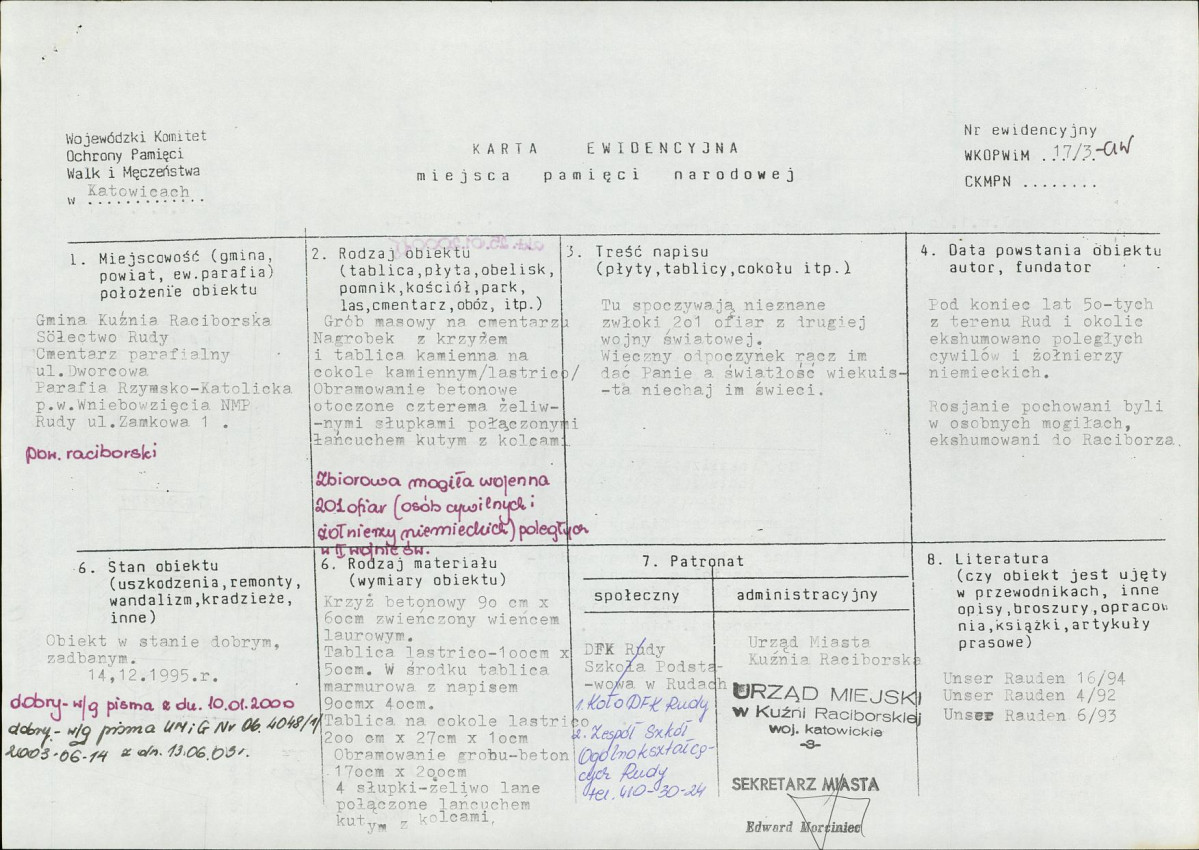 Wojewódzki Komitet
Ochrony Pamięci
Walk i Męczeństwa
w Katowicach
KARTA EWIDENCYJNA
miejsca pamięci narodowej
Nr ewidencyjny
WKOPWiM .17/3-AW
CKMPN ........
1. Miejscowość (gmina,
powiat, ew.parafia)
położenie obiektu
Gmina Kuźnia Raciborska
Sołectwo Rudy
Cmentarz parafialny
ul.Dworcowa
Parafia Rzymsko-Katolicka
p.w.Wniebowzięcia NMP
Rudy ul.Zamkowa 1 .
pow. raciborski
2. Rodzaj obiektu
(tablica,płyta,obelisk,
pomnik,kościół,park,
las,cmentarz,obóz, itp.)
Grób masowy na cmentarzu
Nagrobek z krzyżem
i tablica kamienna na
cokole kamiennym/lastrico/
Obramowanie betonowe
otoczone czterema żeliw-
-nymi słupkami połączonymi
łańcuchem kutym z kolcami
Zbiorowa mogiła wojenna
201 ofiar (osób cywilnych i
żołnierzy niemieckich) poległych
w II wojnie św.
3. Treść napisu
(płyty,tablicy,cokołu itp.)
Tu spoczywają nieznane
zwłoki 2o1 ofiar z drugiej
wojny światowej.
Wieczny odpoczynek racz im
dać Panie a światłość wiekuis-
-ta niechaj im świeci.
4. Data powstania obiektu
autor, fundator
Pod koniec lat 5o-tych
z terenu Rud i okolic
ekshumowano poległych
cywilów i żołnierzy
niemieckich.
Rosjanie pochowani byli
w osobnych mogiłach,
ekshumowani do Raciborza.
6. Stan obiektu
(uszkodzenia,remonty,
wandalizm,kradzieże,
inne)
Obiekt w stanie dobrym,
zadbanym.
14,12.1995.r.
dobry- w/g pisma z dn. 10.01.2000
dobry- w/g pisma UMiG Nr OG.4048/1/
2003-06-14 z dn. 13.06.03r.
6. Rodzaj materiału
(wymiary obiektu)
Krzyż betonowy 9o cm x
6ocm zwieńczony wieńcem
laurowym.
Tablica lastrico-1oocm x
5ocm. W środku tablica
marmurowa z napisem
9ocmx 4ocm.
Tablica na cokole lastrico
2oo cm x 27cm x 1ocm
Obramowanie grobu-beton
17ocm x 2oocm
4 słupki-żeliwo lane
połączone łańcuchem
kutym z kolcami,
7. Patronat
społeczny
DFK Rudy
Szkoła Podsta-
-wowa w Rudach
1. Koło DFK Rudy
2. Zespół Szkół
Ogólnokształcą-
cych Rudy
tel. 410-30-24
administracyjny
Urząd Miasta
Kuźnia Raciborska
URZĄD MIEJSKI
w Kuźni Raciborskiej
woj. katowickie
-3-
SEKRETARZ MIASTA
Edward Marciniec
8. Literatura
(czy obiekt jest ujęty
w przewodnikach, inne
opisy,broszury,opracow
nia,książki,artykuły
prasowe)
Unser Rauden 16/94
Unser Rauden 4/92
Unser Rauden 6/93